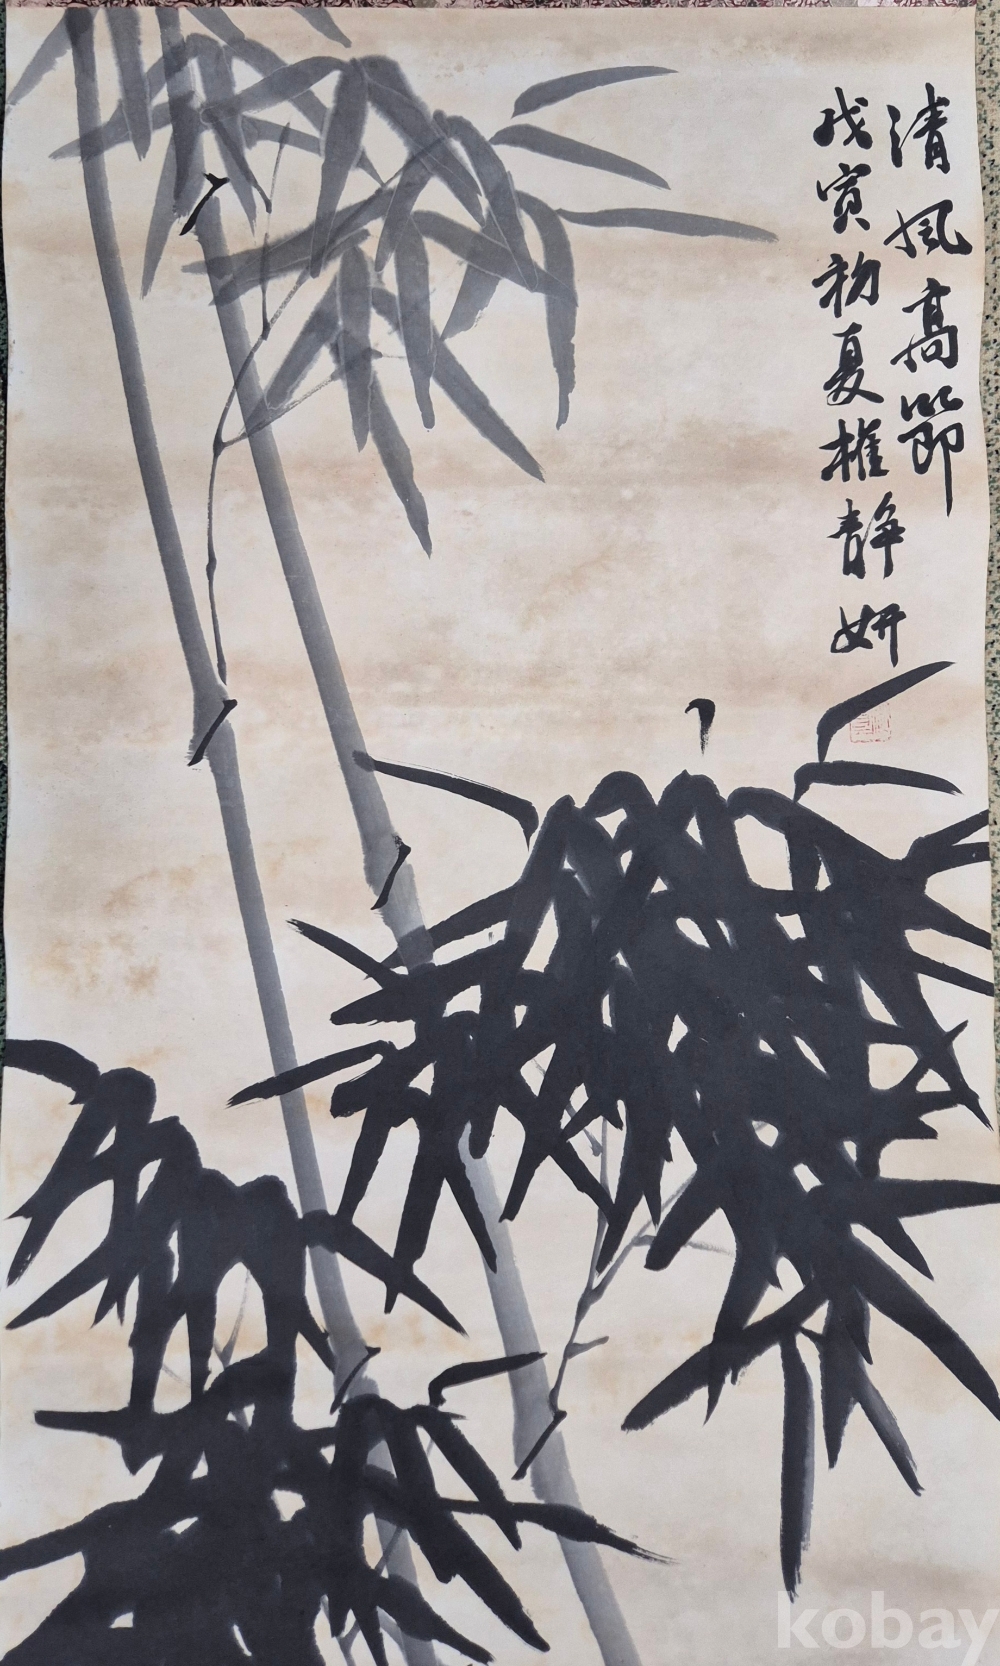 清風高節
戊寅初夏權靜妍
kobay